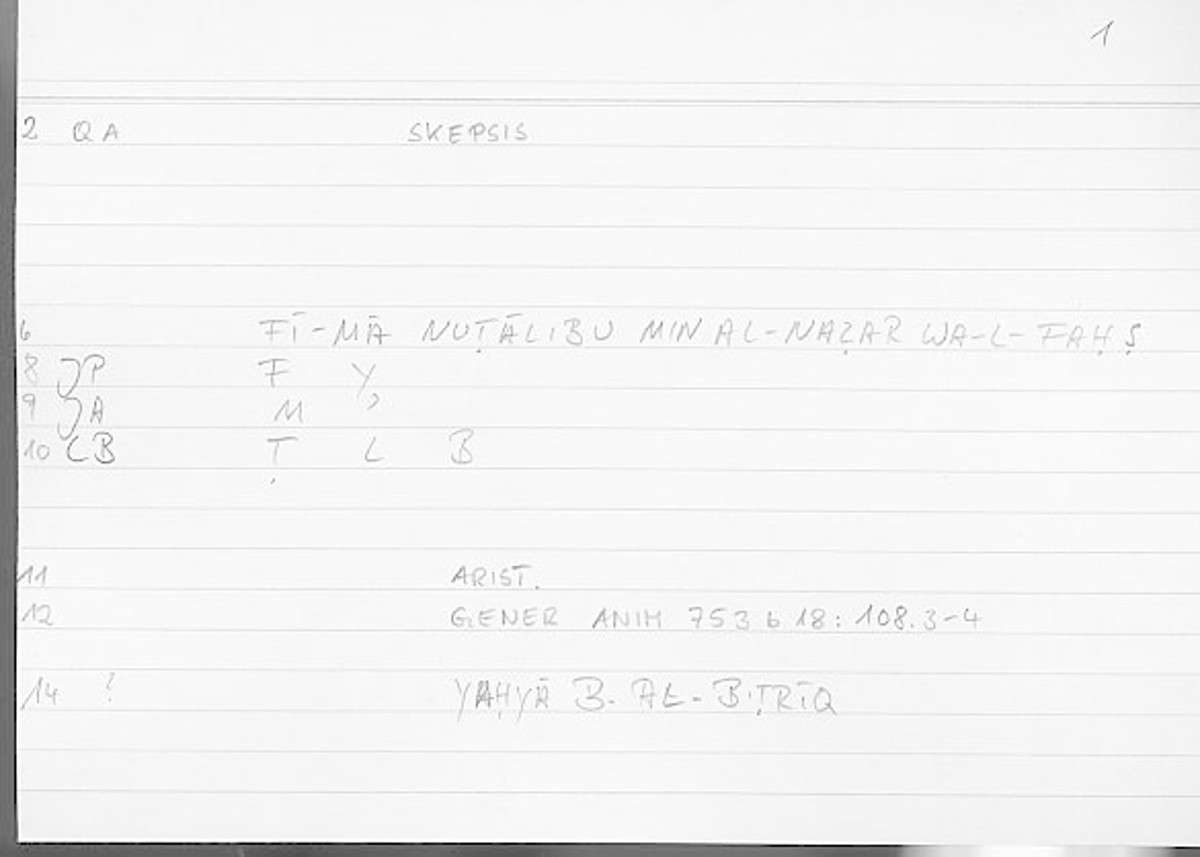 1
2 QA SKEPSIS
6 FĪ-MĀ NUṬĀLIBU MIN AL-NAẒAR WA-L-FAḤṢ
8 P F Y,
9 A M
10 CB Ṭ L B
11 ARIST.
12 GENER ANIM 753 b 18: 108.3-4
14 ? YAḤYĀ B. AL-BIṬRĪQ